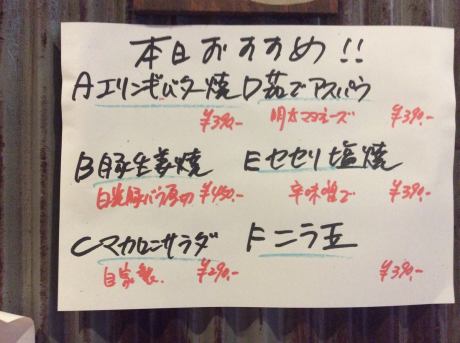 本日おすすめ!!
Aエリンギバター焼
¥390.-
B豚生姜焼
白光豚バラ厚切 ¥450.-
Cマカロニサラダ
自家製. ¥290.-
D茹でアスパラ
明太マヨネーズ ¥390.-
Eセセリ塩焼
辛味噌で ¥390.-
Fニラ玉
¥390.-